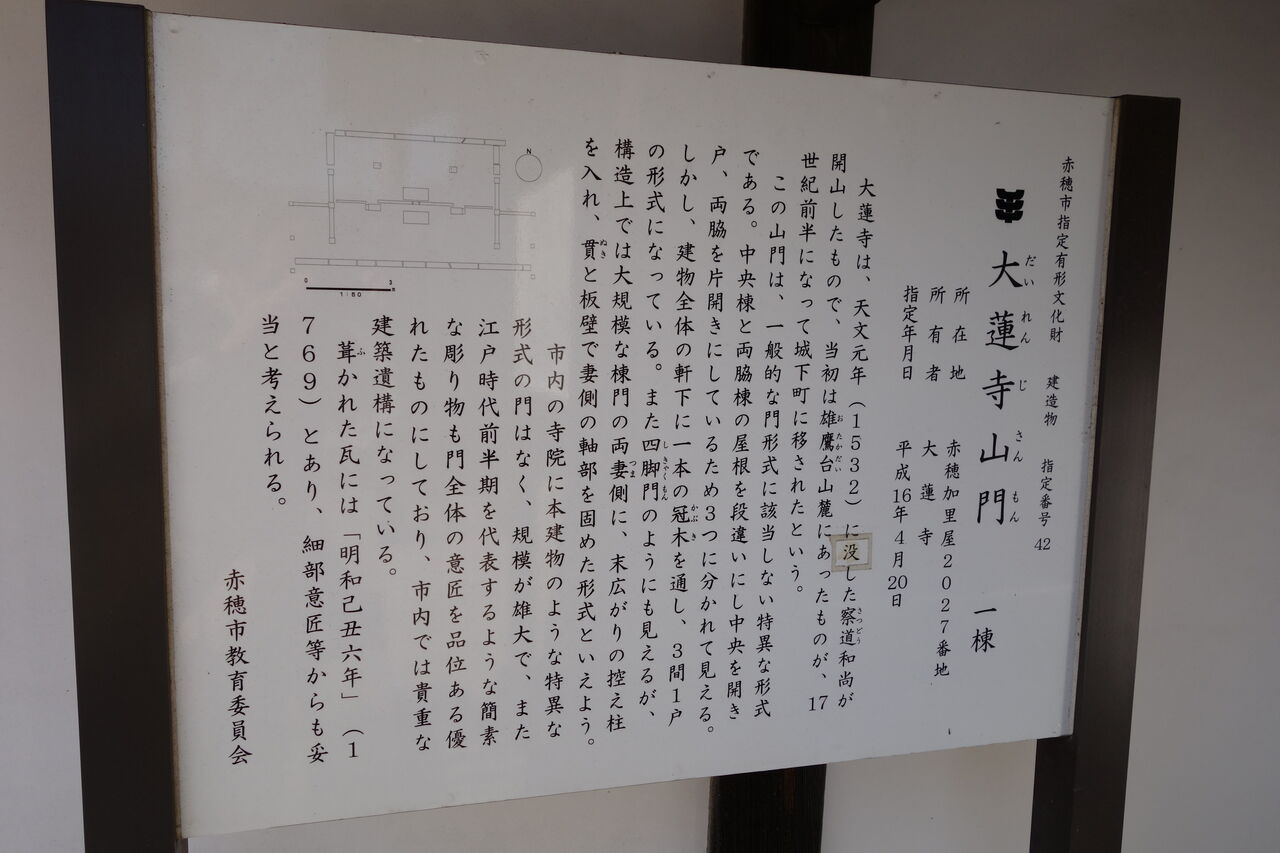 赤穂市指定有形文化財 建造物 指定番号 42
大蓮寺山門 一棟
だいれんじさんもん
所在地 赤穂加里屋2027番地
所有者 大蓮寺
指定年月日 平成16年4月20日
大蓮寺は、天文元年（1532）に没した察道和尚が
さつどう
開山したもので、当初は雄鷹台山麓にあったものが、17
おたかだい
世紀前半になって城下町に移されたという。
この山門は、一般的な門形式に該当しない特異な形式
である。中央棟と両脇棟の屋根を段違いにし中央を開き
戸、両脇を片開きにしているため3つに分かれて見える。
しかし、建物全体の軒下に一本の冠木を通し、3間1戸
かぶき
の形式になっている。また四脚門のようにも見えるが、
しきゃくもん
構造上では大規模な棟門の両妻側に、末広がりの控え柱
つま
を入れ、貫と板壁で妻側の軸部を固めた形式といえよう。
ぬき
市内の寺院に本建物のような特異な
形式の門はなく、規模が雄大で、また
江戸時代前半期を代表するような簡素
な彫り物も門全体の意匠を品位ある優
れたものにしており、市内では貴重な
建築遺構になっている。
葺かれた瓦には「明和己丑六年」（1
ふ
769）とあり、細部意匠等からも妥
当と考えられる。
赤穂市教育委員会
N
0 3 m
1:60